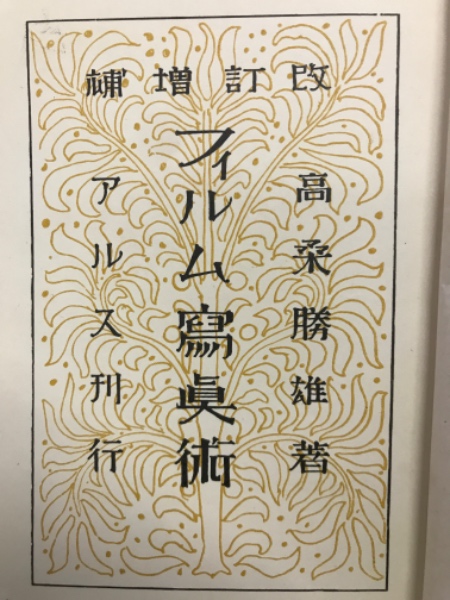 改訂増補
高桑勝雄著
フィルム寫眞術
アルス刊行